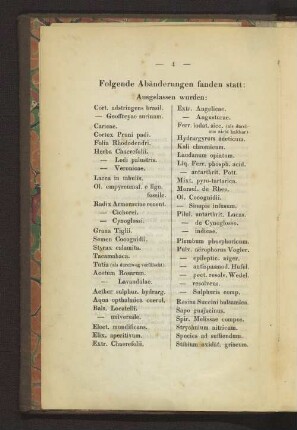 — 4 —
Folgende Abänderungen fanden statt:
Ausgelassen wurden:
Cort. adstringens brasil.
— Geoffreyae surinam.
Carnae.
Cortex Pruni padi.
Folia Rhododendri.
Herba Chaerefolii.
— Ledi palustris.
— Veronicae.
Lacca in tabulis.
Ol. empyreumat. e lign. fossile.
Radix Armoraciae recent.
— Cichorei.
— Cynoglossi.
Grana Tiglii.
Semen Cocognidii.
Styrax calamita.
Tacamahaca.
Tutia
Acetum Rosarum.
— Lavandulae.
Aether sulphur. hydrarg.
Aqua opthalmica coerul.
Bals. Locatelli.
— universale.
Elect. mundificans.
Elix. aperitivum.
Extr. Chaerefolii.
Extr. Angelicae.
— Angusturae.
Ferr. iodat. sicc.
Hydrargyrum aceticum.
Kali chromicum.
Laudanum opiatum.
Liq. Ferr. phosph. acid.
— antarthrit. Pott.
Mixt. pyro-tartarica.
Mucusl. de Rhoo.
Ol. Cocognidii.
— Sinapis infusum.
Pilul. antarthrit. Lucas.
— de Cynoglosso.
— iodinae.
Plumbum phosphoricum.
Pulv. aërophorus Vogler.
— epileptic. niger.
— antispasmod. Hufel.
— pect. resolv. Wedel.
— resolvens.
— Sulphuris comp.
Resina Succini balsamica.
Sapo guajacinus.
Spir. Melissae compos.
Strychnium nitricum.
Species ad suffiendum.
Stibium oxidul. griseum.